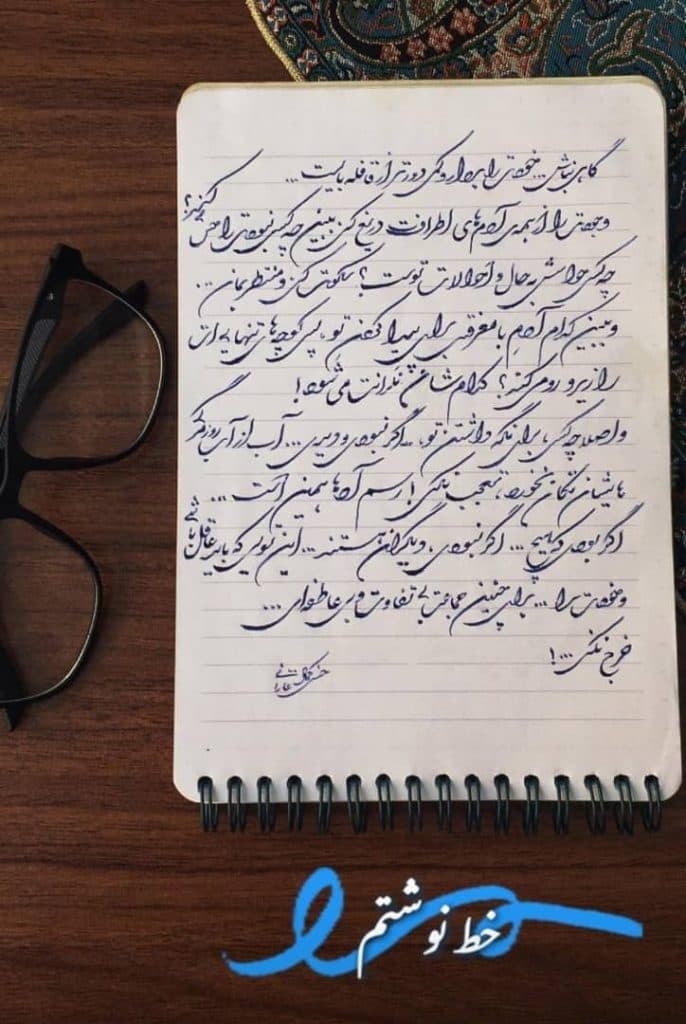 گاهی نباش... خودت را بردار و کمی دورتر از قافله بایست...
وجودت را از همه‌ی آدم‌های اطرافت دریغ کن ببین چه کسی نبودت را حس می‌کند؟
چه کسی حواسش به حال و احوالات توست؟ سکوت کن و منتظر بمان..
و ببین کدام آدمِ با معرفتی برای پیدا کردن تو، پس کوچه‌های تنهایی‌ات
را زیر و رو می‌کند؟ کدام‌شان نگرانت می‌شود!
و اصلا چه کسی، برای نگه داشتن تو،... اگر نبودی و دیدی... آب از آبِ روزگار
هایشان تکان نخورد، تعجب نکن! رسم آدم‌ها همین است...
اگر بودی که هیچ... اگر نبودی، دیگران هستند... این تویی که باید عاقل باشی
و خودت را... برای چنین جماعت بی تفاوت و بی عاطفه‌ای...
خرج نکنی...!
خط نوشتم